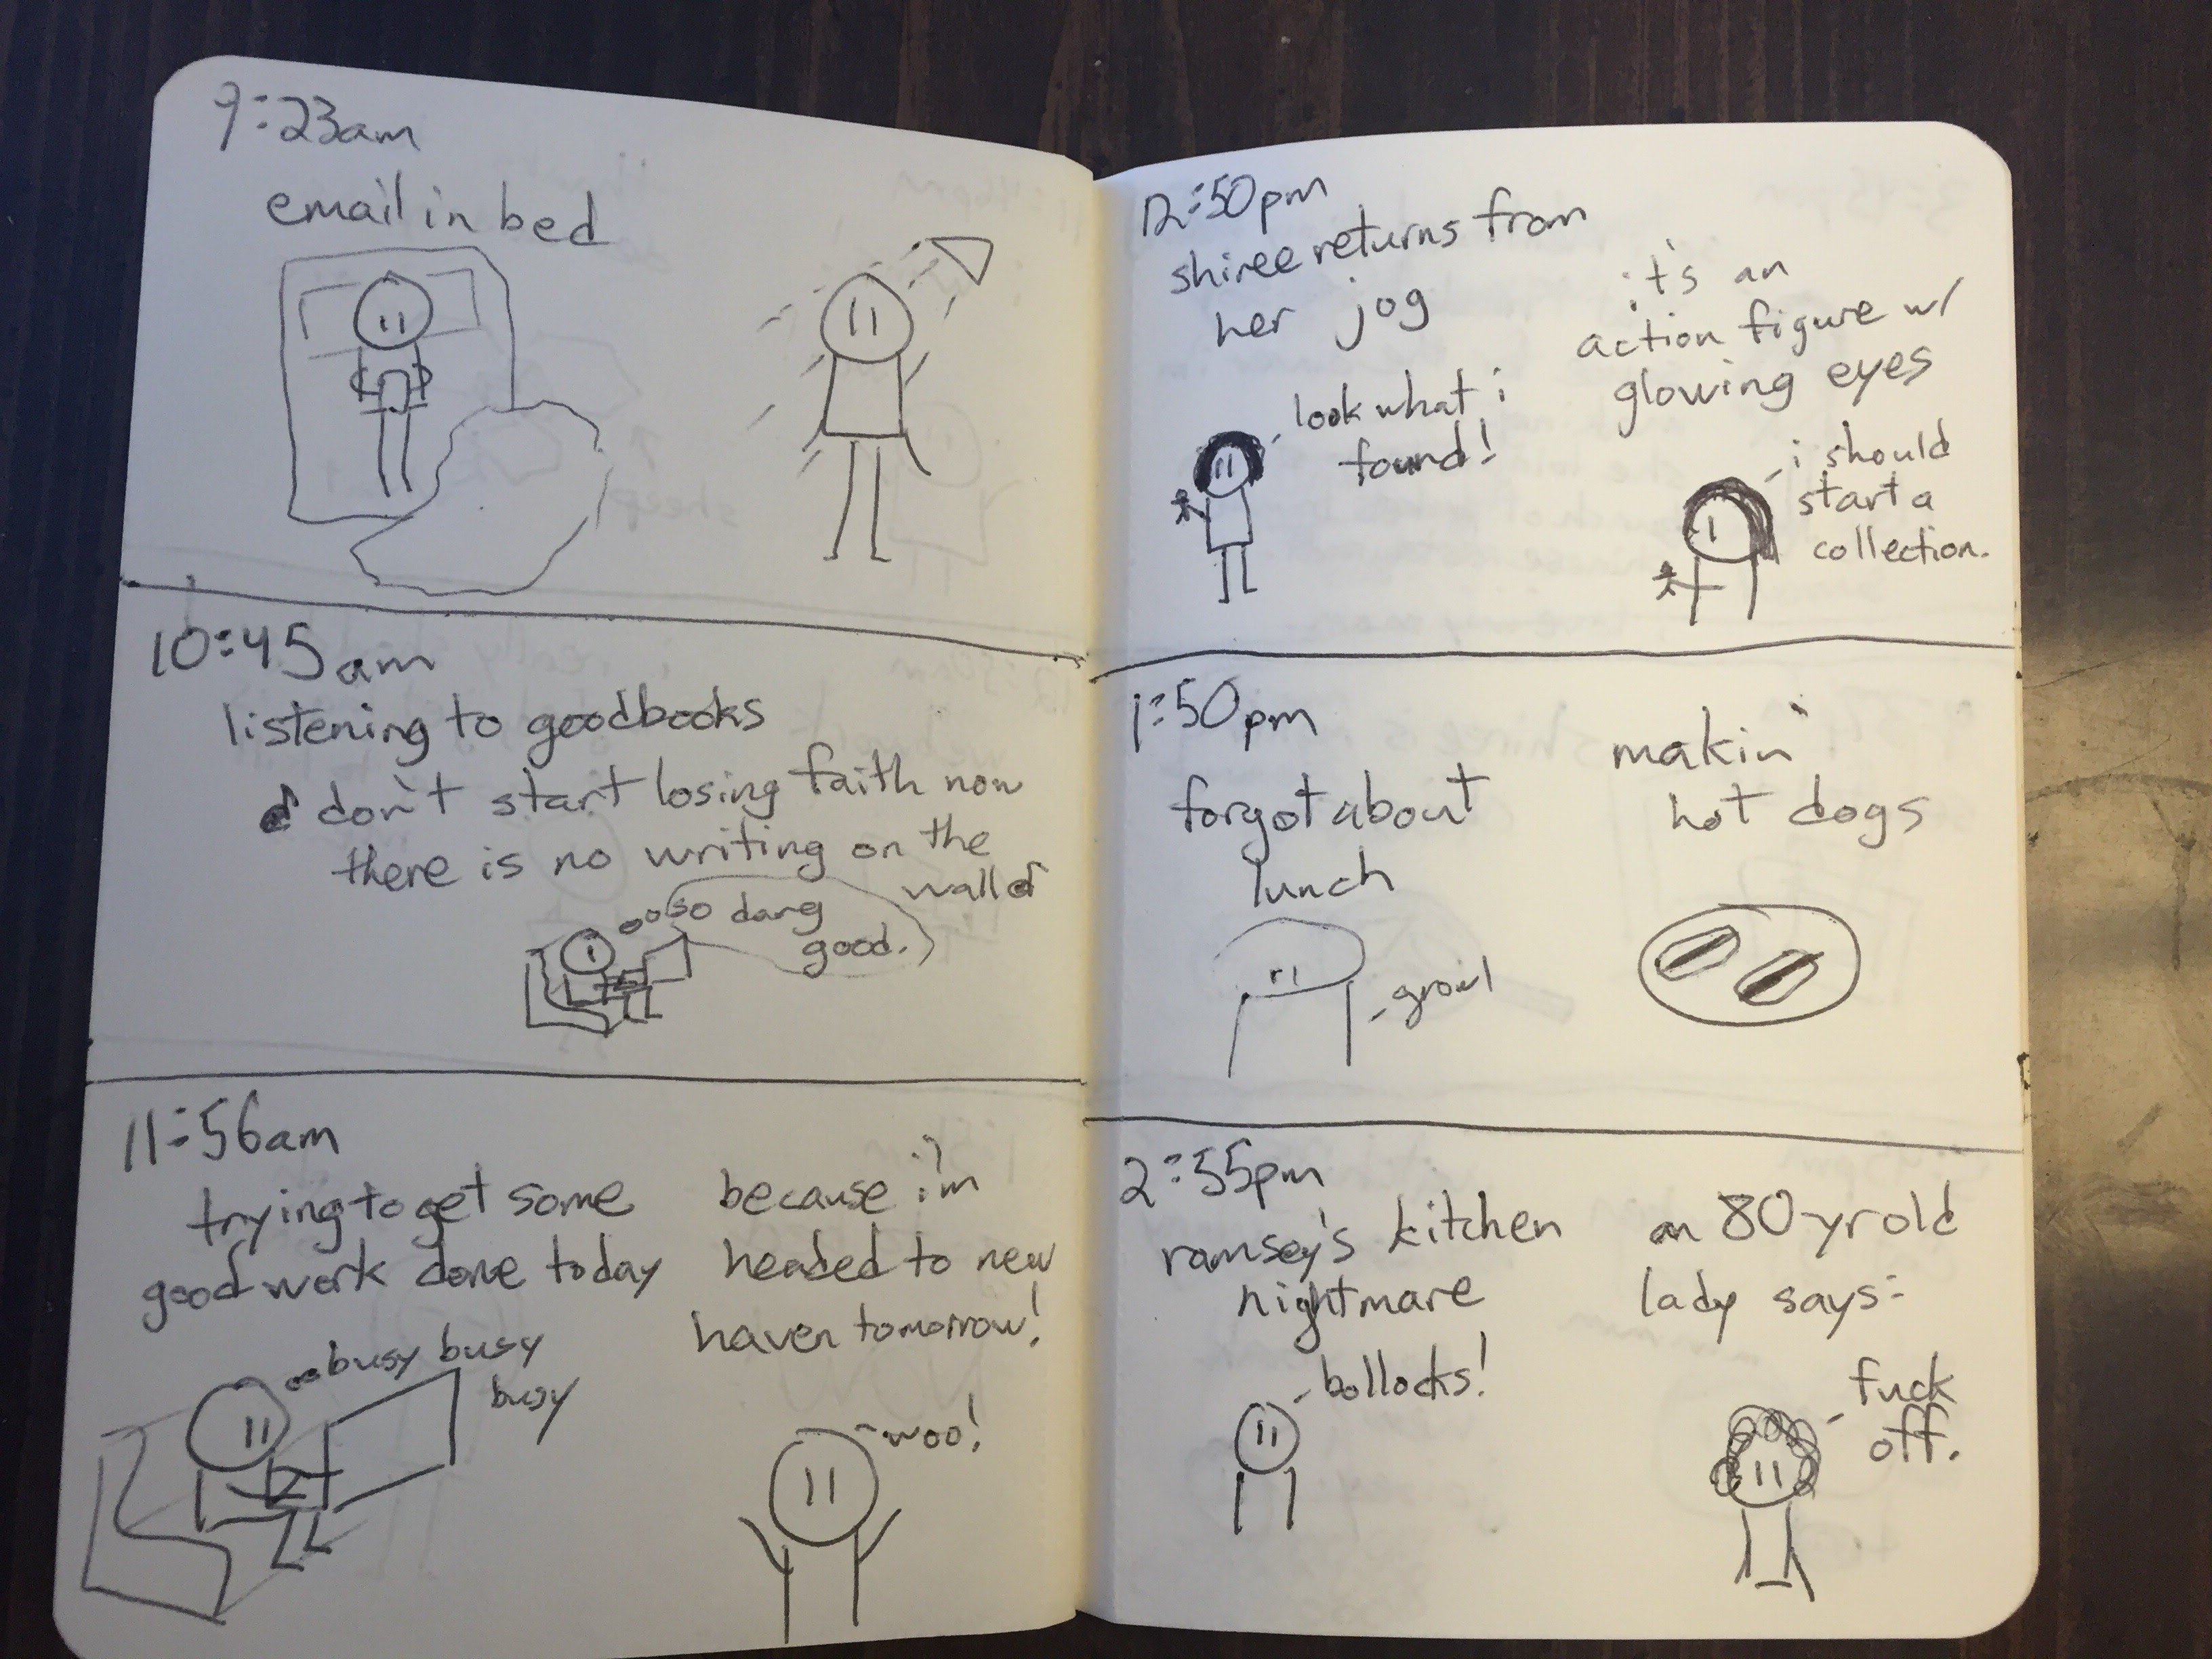 9:23am
email in bed
10:45am
listening to goodbooks
don't start losing faith now
there is no writing on the
wall
so dang
good.
11:56am
trying to get some
good work done today
busy busy
busy
because i'm
headed to new
haven tomorrow!
woo!
12:50pm
shiree returns from
her jog
look what i
found!
it's an
action figure w/
glowing eyes
i should
start a
collection.
1:50pm
forgot about
lunch
growl
makin'
hot dogs
2:55pm
ramsey's kitchen
nightmare
bollocks!
an 80 yr old
lady says:
fuck
off.